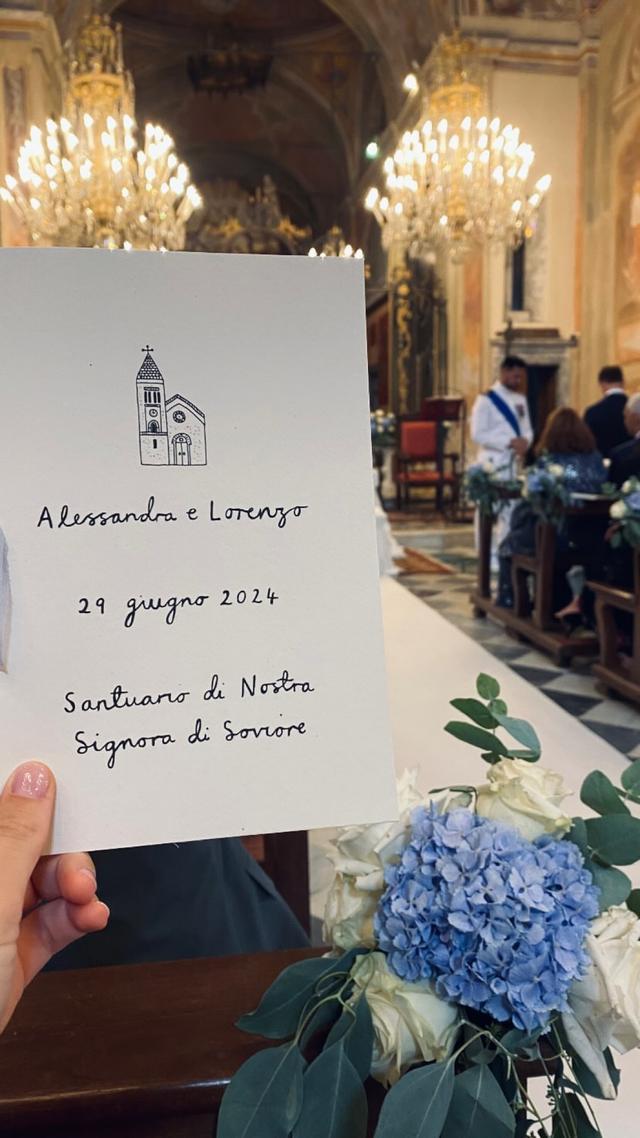 Alessandra e Lorenzo
29 giugno 2024
Santuario di Nostra
Signora di Soviore